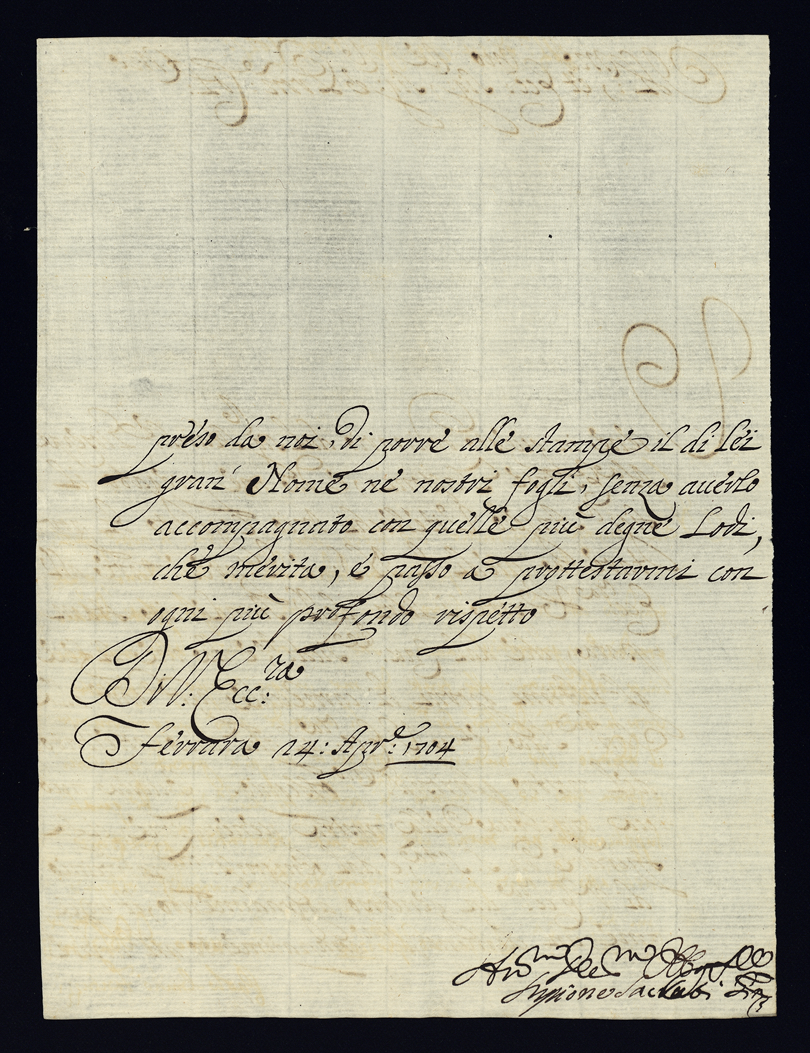 preso da noi, di porre alle stampe il di lei
gran' Nome ne nostri fogli, senza auerlo
accompagnato con quelle più degne Lodi,
che merita, e passo a prottestarmi con
ogni più profondo rispetto
Di V: Ecc:za
Ferrara 14: Apr.e: 1704
Scipione Sacrati